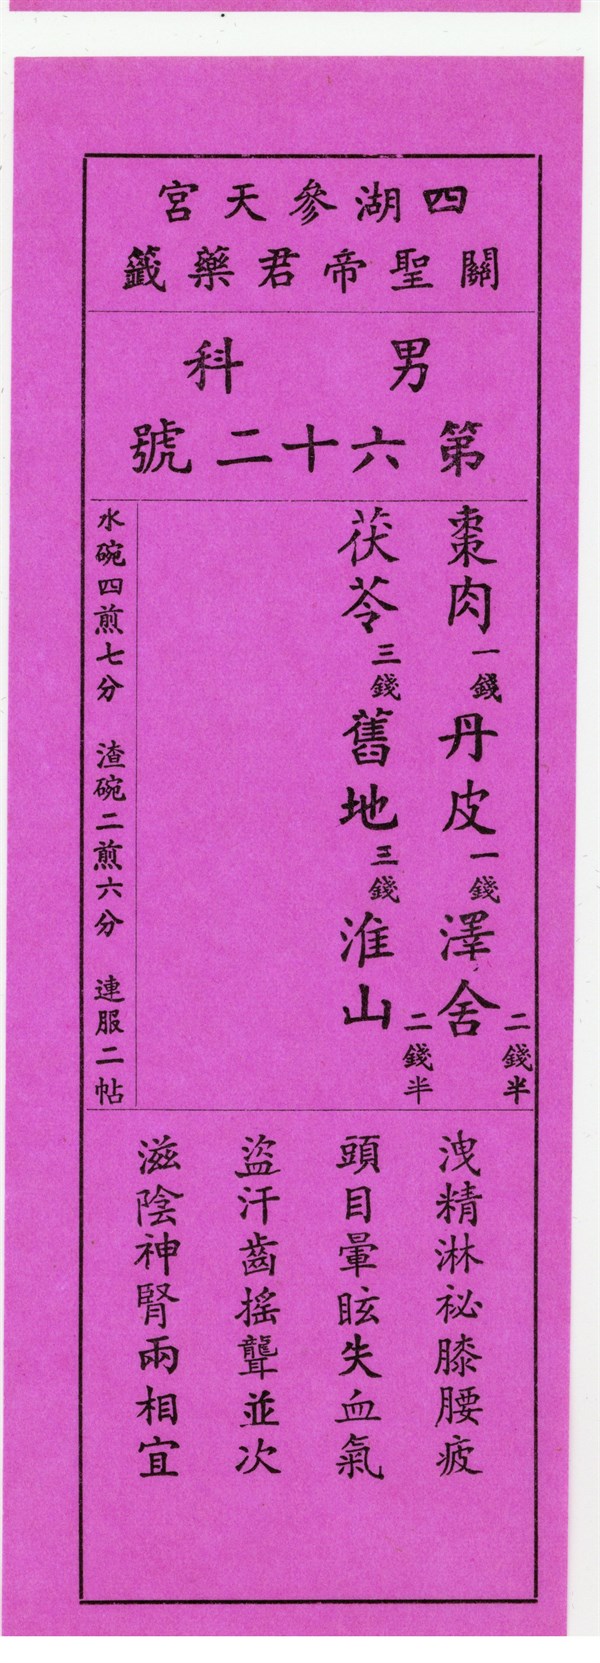 四湖參天宮
關聖帝君藥籤
男科
第六十二號
棗肉一錢丹皮一錢澤舍二錢半
茯苓三錢舊地三錢淮山二錢半
水碗四煎七分 渣碗二煎六分 連服二帖
洩精淋祕膝腰疲
頭目暈眩失血氣
盜汗齒搖聾並次
滋陰神腎兩相宜